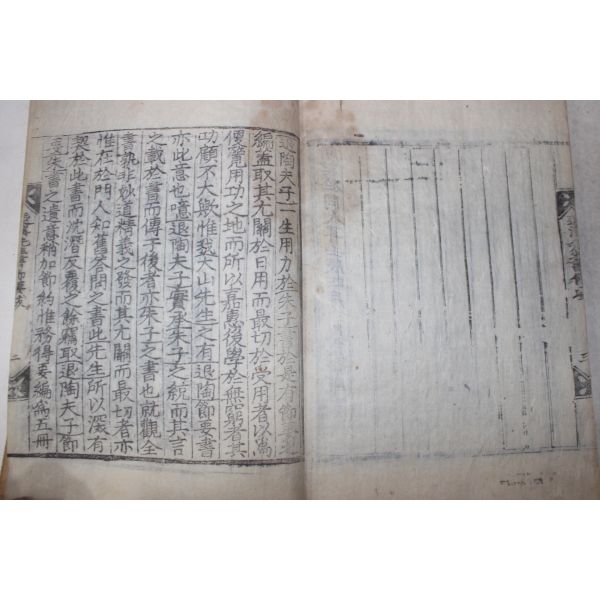 退陶夫子一生用力於朱子書於是有節要
編盖取其尤關於日用而最切於受用者以爲
用功之地而所以嘉惠後學於無窮者其
功顧不大歟惟我大山先生之有退陶節要書
亦此意也噫退陶夫子實承朱子之統而其言
之載於書而傳于後者亦朱子之書也就觀全
書孰非妙道精義之發而其尤關而最切者亦
惟在於門人知舊答問之書此先生所以深有
契於此書而沈潛反覆之餘竊取退陶夫子節
要朱書之遺意稍加節約惟務得要編爲五冊
書節要跋
二